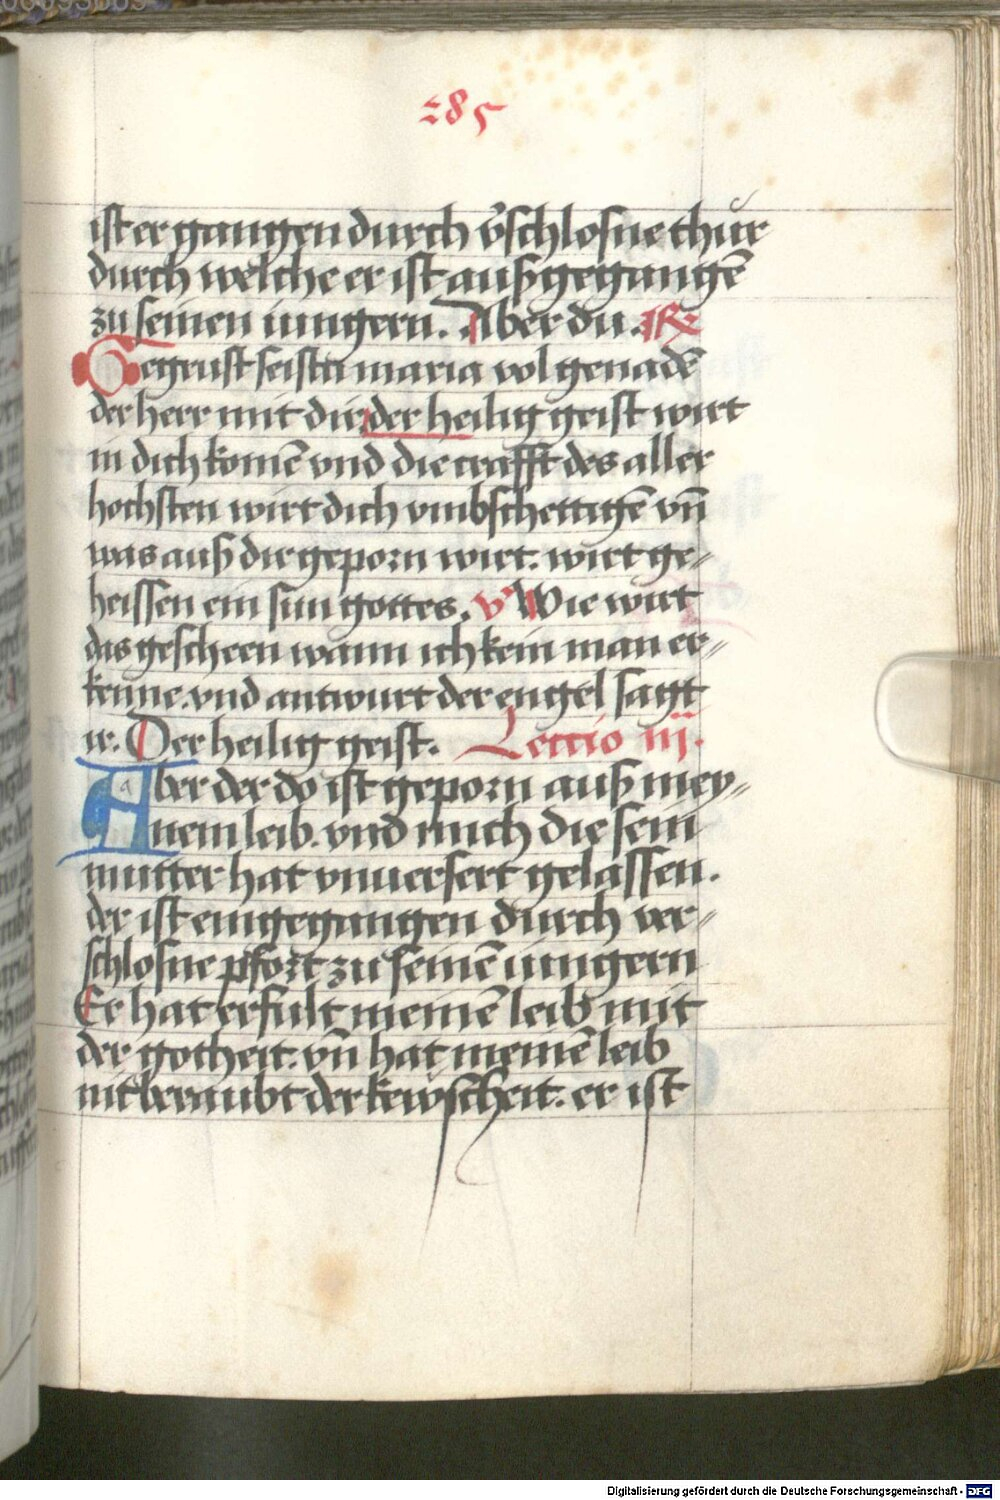 285
ist er gangen durch v̾schlosne thür
durch welche er ist auß gegangē
zu seinen iungern. Aber du. R̸
Gegrust seistu maria vol genadē
der herr mit dir. der heilig geist wirt
in dich komē vnd die crafft des aller
hochsten wirt dich vmbschettigē vn̄
was auß dir geporn wirt. wirt ge⸗
heissen ein sun gottes. v̾ Wie wirt
das gescheen wann ich kein man er⸗
kenne. vnd antwurt der engel sagt
ir. Der heilig geist. Lectio iij.
Aber der do ist geporn auß mey⸗
nem leib. vnd mich die sein
mutter hat vnuersert gelassen.
der ist eingegangen durch ver⸗
schlosne pfort zu seinē iungern
Er hat erfult meinē leib mit
der gotheit. vn̄ hat meinē leib
nit beraubt der kewscheit. er ist
Digitalisierung gefördert durch die Deutsche Forschungsgemeinschaft - DFG